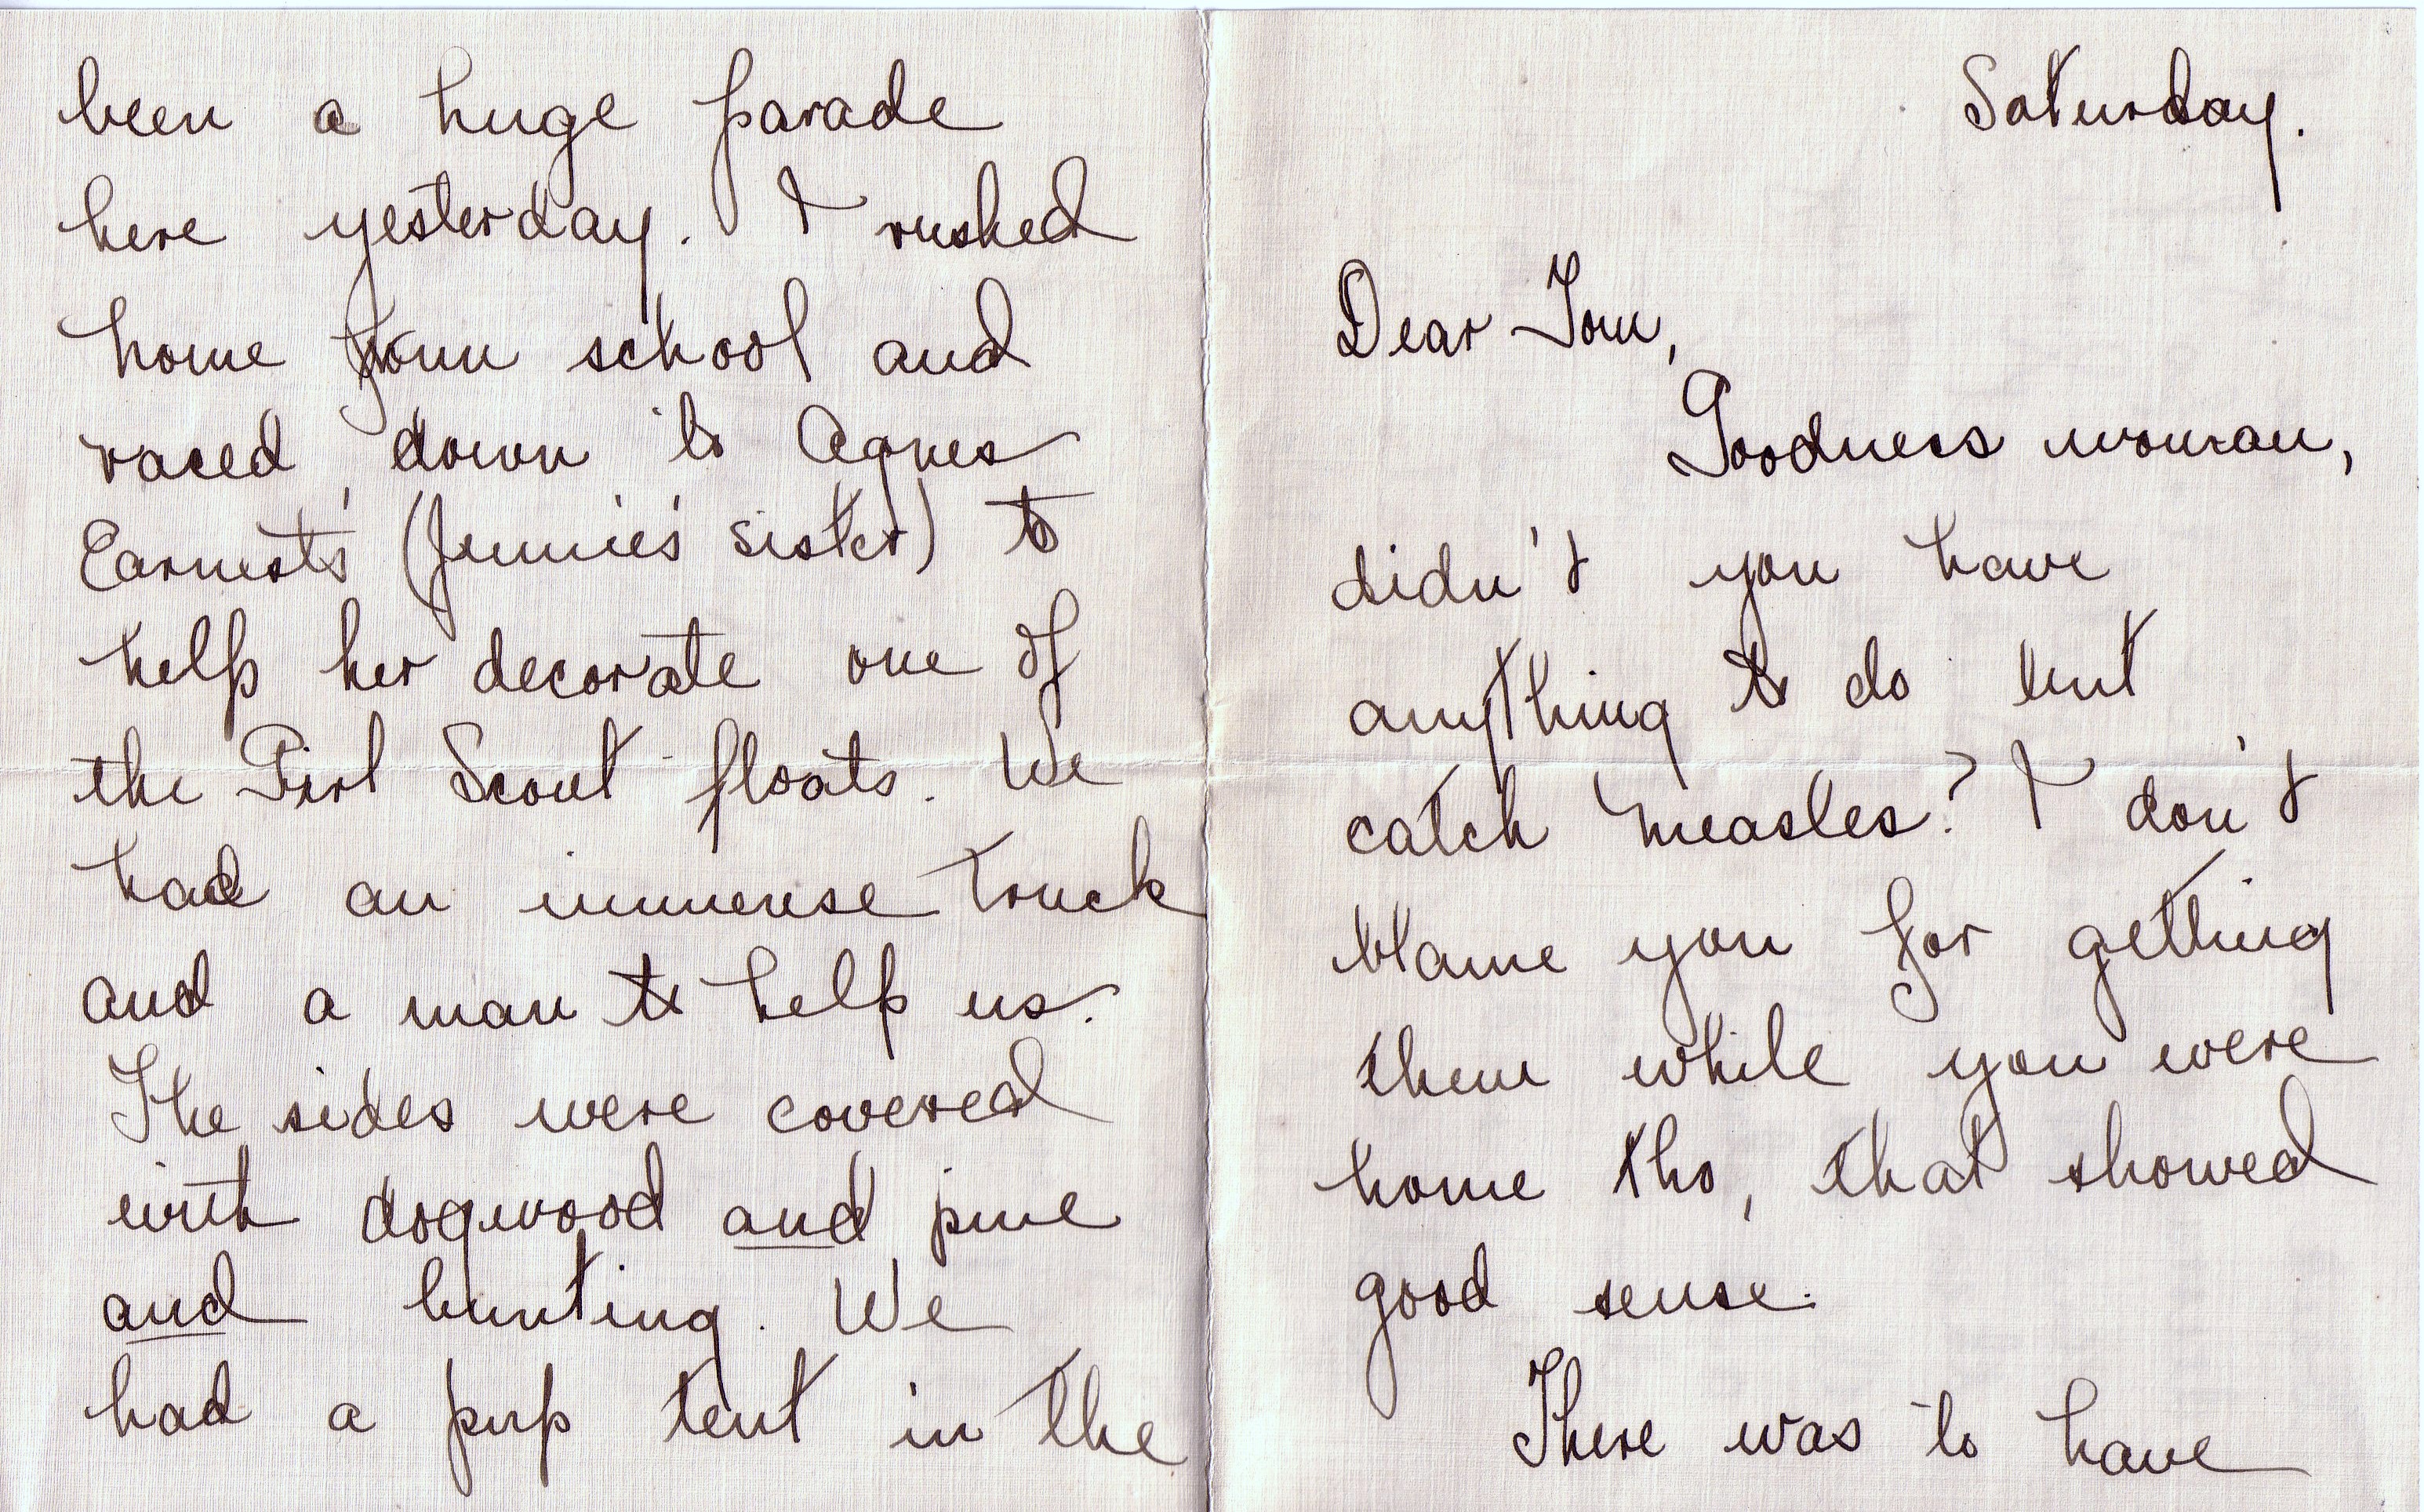 Saturday.
Dear Tom,
Goodness woman,
didn't you have
anything to do but
catch measles? I don't
blame you for getting
them while you were
home tho, that showed
good sense.
There was to have
been a huge parade
here yesterday. I rushed
home from school and
raced down to Agnes
Earnest's (Jennie's sister) to
help her decorate one of
the Girl Scout floats. We
had an immense truck
and a man to help us.
The sides were covered
with dogwood and pine
and bunting. We
had a pup tent in the